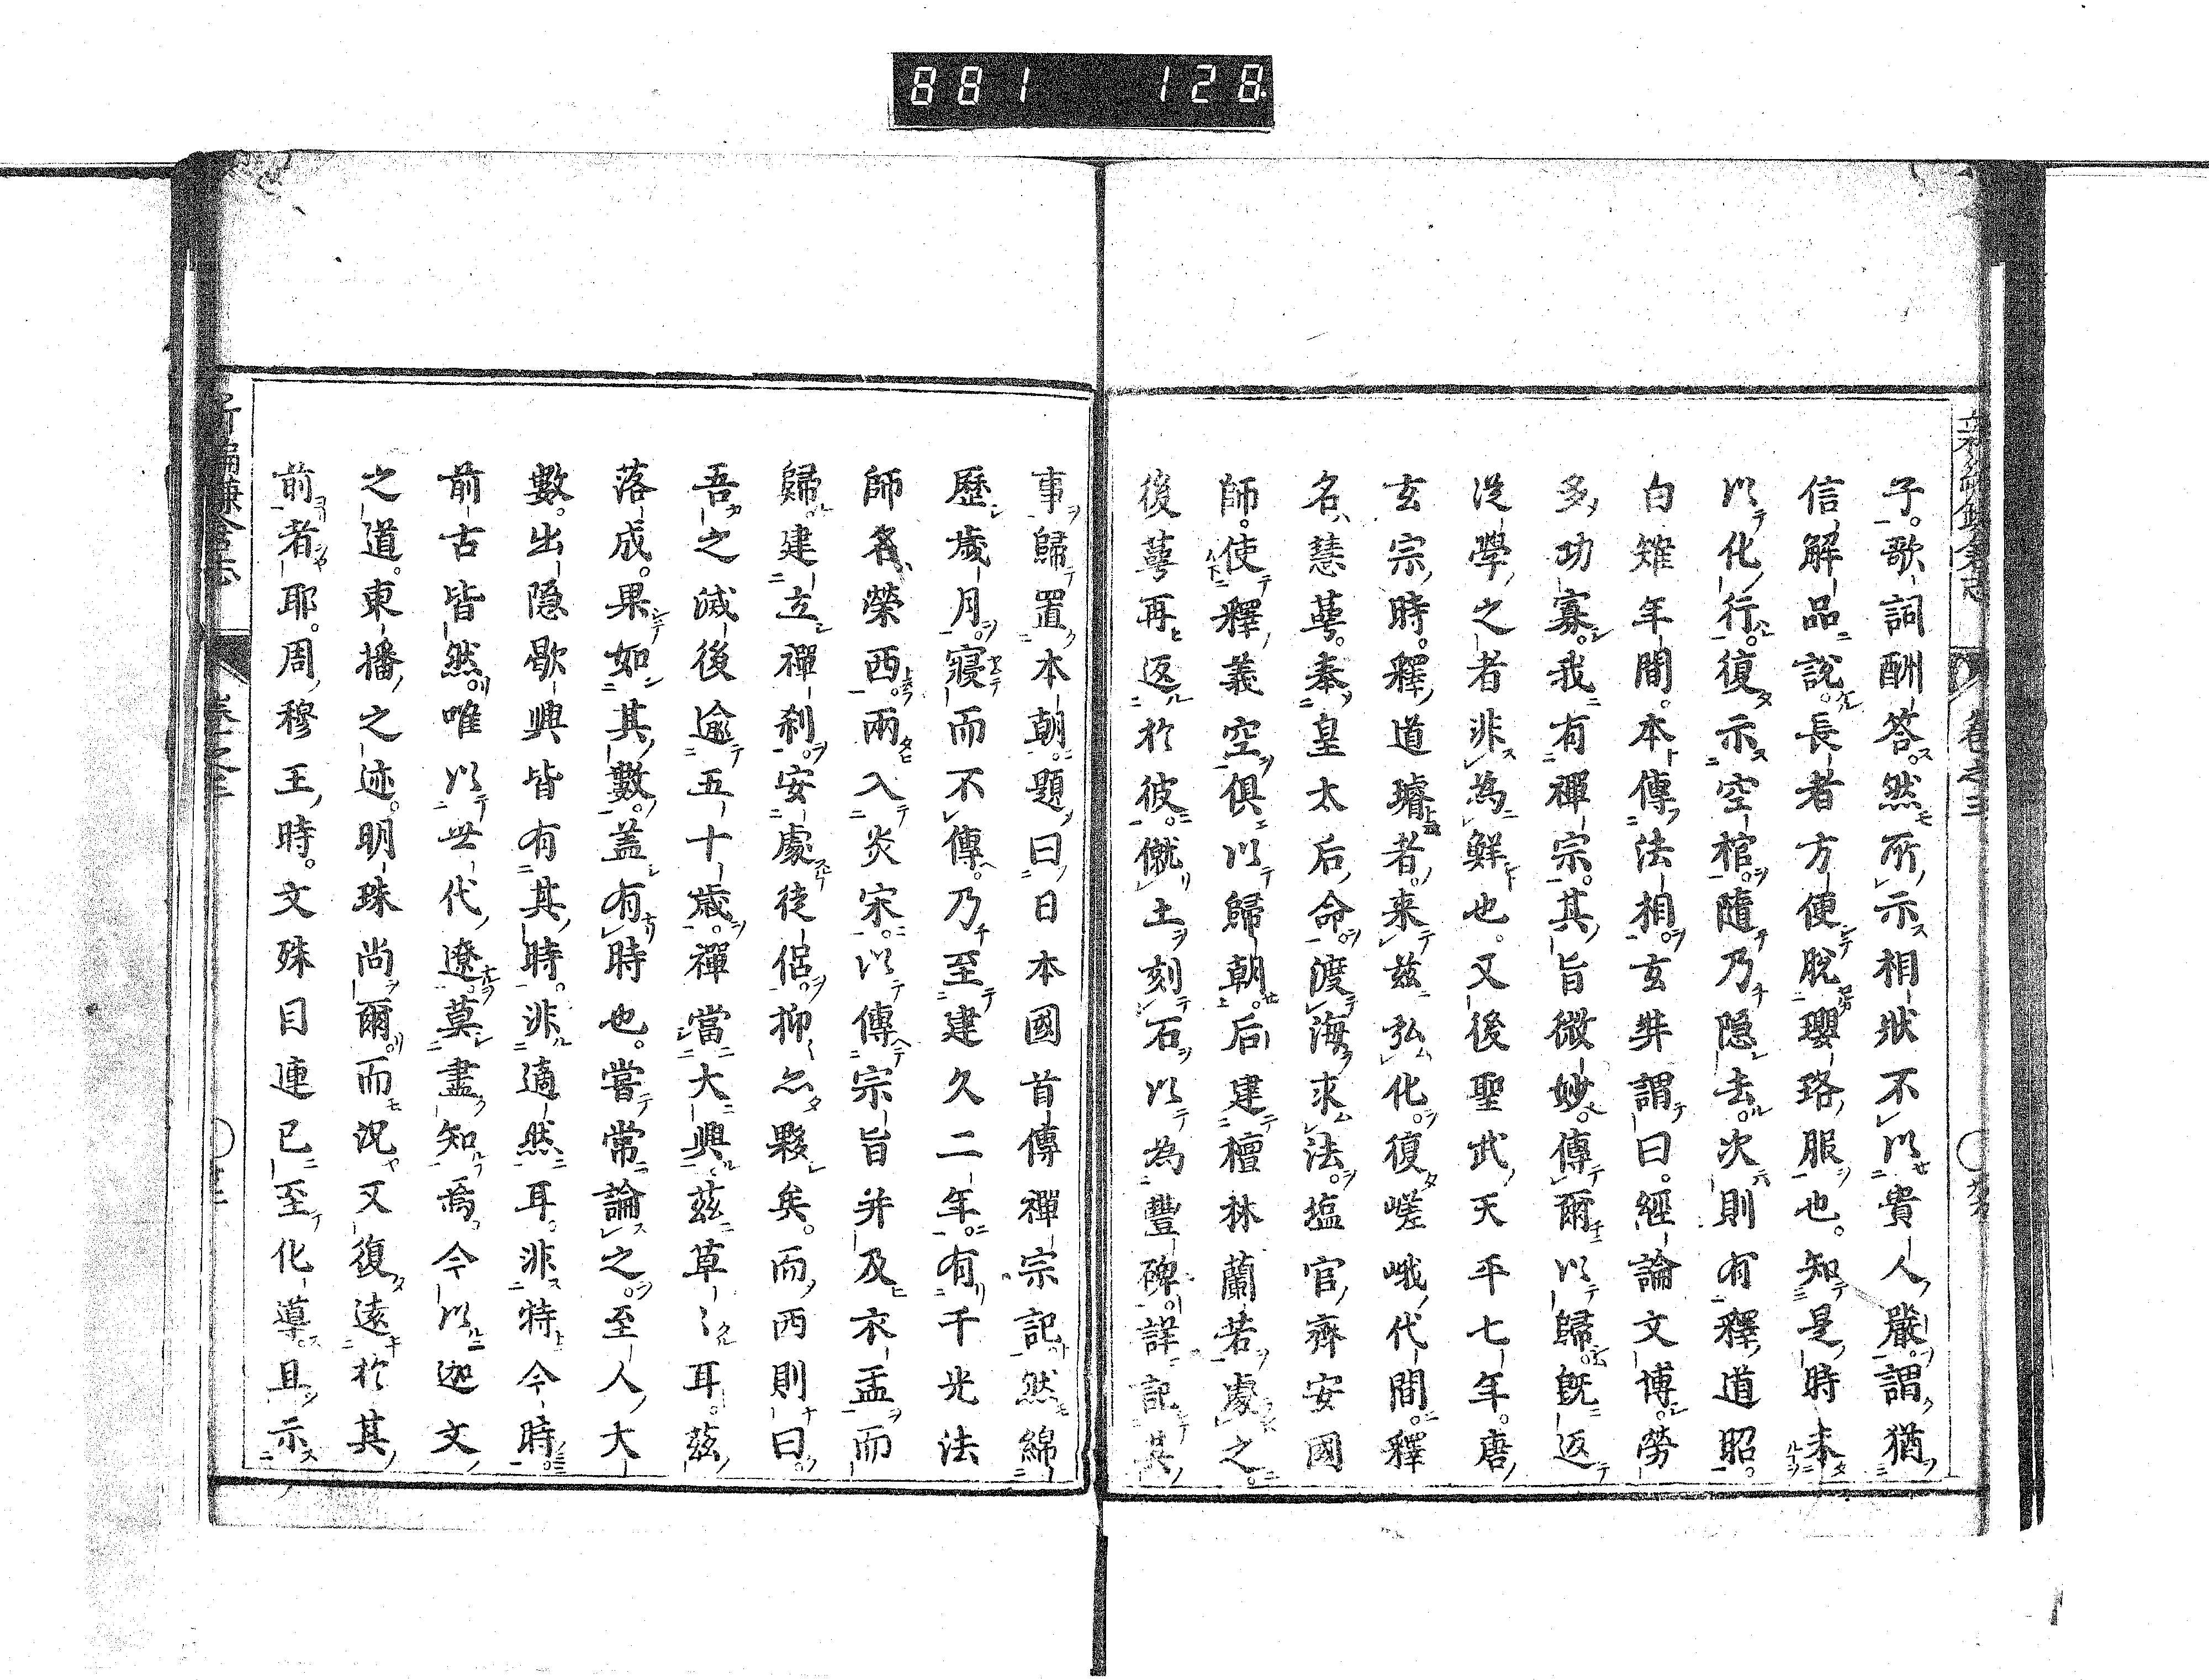 881 128
卷之三
子。歌詞酬答。然所示相狀不以貴人嚴。謂猶
信解品說。長者方便脫瓔珞服也。知是時未
以化行。復示空棺。隨乃隱去。次則有釋道昭。
白雉年間。本傳法相。玄奘謂曰。經論文博。勞
多功寡。我有禪宗。其旨微妙。傳爾以歸。既返
從學之者非為鮮也。又後聖武天平七年。唐
玄宗時。釋道璿者。来茲弘化。復嵯峨代間。釋
名慧萼。奉皇太后命。渡海求法。塩官齊安國
師。使釋義空俱以歸朝。后建檀林蘭若處之。
後萼再返於彼。僦土刻石以為豐碑。詳記其
事歸置本朝。題曰日本國首傳禪宗記。然綿
歷歲月。寢而不傳。乃至建久二年。有千光法
師名榮西。兩入炎宋。以傳宗旨并及衣盂。而
歸建立禪刹。安處徒侶。抑亦夥矣。而西則曰。
吾之滅後逾五十歲。禪當大興茲草〻耳。茲
落成。果如其數。盖有時也。嘗常論之。至人大
數。出隱歇興皆有其時。非適然耳。非特今時。
前古皆然。唯以世代遼。莫盡知焉。今以迦文
之道。東播之迹。明珠尚爾。而况又復遠於其
前者耶。周穆王時。文殊目連已至化導。且示
新編鎌倉志
卷之三